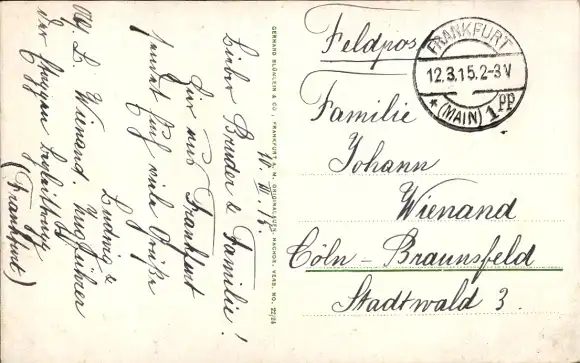 11. III. 15.
Lieber Bruder & Familie!
Hier aus Frankfurt
sendet Euch viele Grüße
Ludwig &
L. Wienand. Zugführer
der Wagen begleitung
(Frankfurt)
GERHARD BLÜMLEIN & CO., FRANKFURT A. M. NACHDR. VERB. NO. 22/24
Feldpost
FRANKFURT
12.3.15.2-3V
* (MAIN) 1 PP
Familie
Johann
Wienand
Cöln - Braunsfeld
Stadtwald 3.